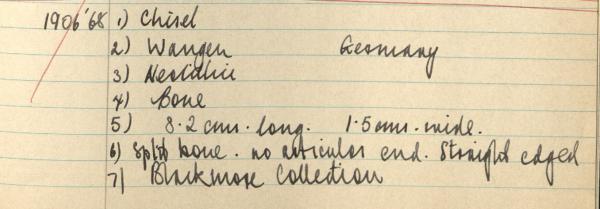 1906'68 1) Chisel
2) Wangen Germany
3) Neolithic
4) Bone
5) 8.2 cms. long. 1.5 cms. wide.
6) Split bone. no articular end. Straight edged
7) Blackmore Collection